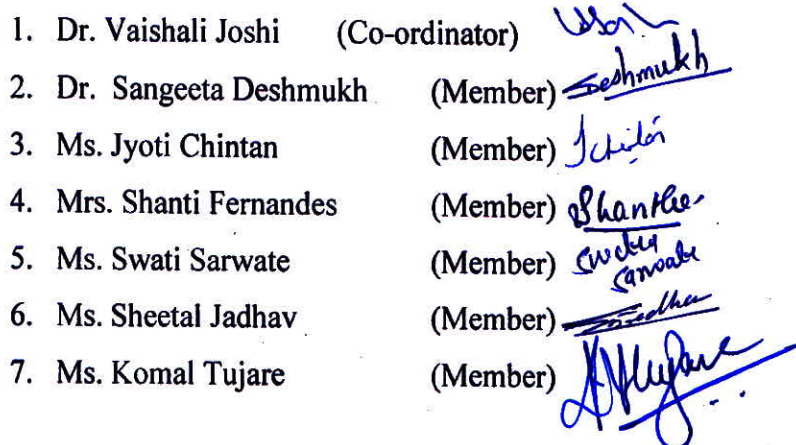 1. Dr. Vaishali Joshi (Co-ordinator)
2. Dr. Sangeeta Deshmukh (Member) Deshmukh
3. Ms. Jyoti Chintan (Member) JChintan
4. Mrs. Shanti Fernandes (Member)
5. Ms. Swati Sarwate (Member) Swati
Sarwate
6. Ms. Sheetal Jadhav (Member)
7. Ms. Komal Tujare (Member)